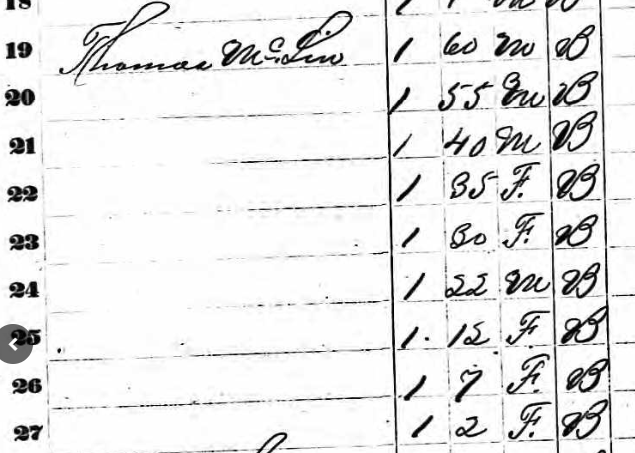 18 1
19 Thomas McLin 1 60 M B
20 1 55 M B
21 1 40 M B
22 1 35 F. B
23 1 30 F. B
24 1 22 M B
25 1. 12 F. B
26 1 7 F. B
27 1 2 F. B